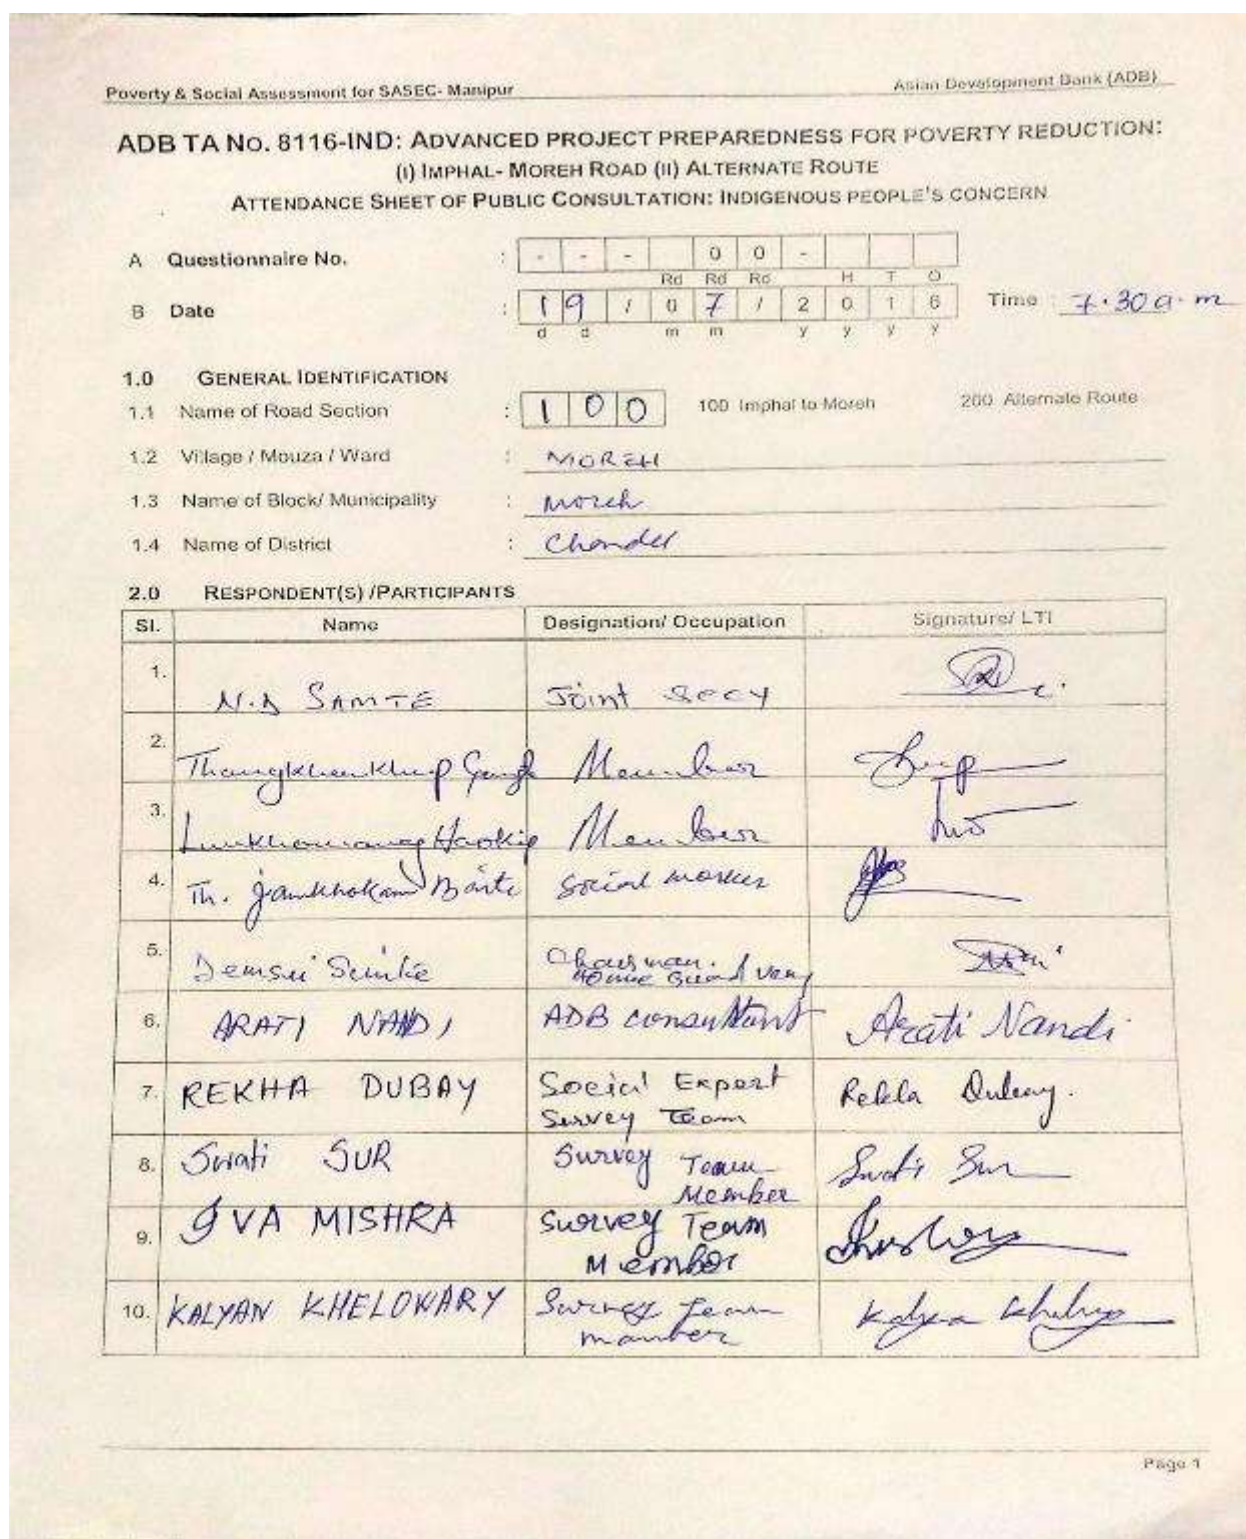 Poverty & Social Assessment for SASEC- Manipur Asian Development Bank (ADB)
ADB TA No. 8116-IND: ADVANCED PROJECT PREPAREDNESS FOR POVERTY REDUCTION:
(I) IMPHAL- MOREH ROAD (II) ALTERNATE ROUTE
ATTENDANCE SHEET OF PUBLIC CONSULTATION: INDIGENOUS PEOPLE'S CONCERN
A Questionnaire No. : - - - 0 0 -
Rd Rd Rd H T O
B Date : 19/07/2016 Time : 7.30 a.m
d d m m y y y y
1.0 GENERAL IDENTIFICATION
1.1 Name of Road Section : 100 100 Imphal to Moreh 200 Alternate Route
1.2 Village / Mouza / Ward : MOREH
1.3 Name of Block/ Municipality : Moreh
1.4 Name of District : Chandel
2.0 RESPONDENT(S) /PARTICIPANTS
Sl. Name Designation/ Occupation Signature/ LTI
1. N.D SAMTE Joint Secy
2. Member
3. Haokip Member
4. Th. Social worker
5. Chairman.
6. ARATI NANDI ADB consultant Arati Nandi
7. REKHA DUBAY Social Expert Rekha Dubay.
Survey Team
8. Swati SUR Survey Team Swati Sur
Member
9. IVA MISHRA Survey Team
Member
10. KALYAN KHELOWARY Survey Team
member
Page 1